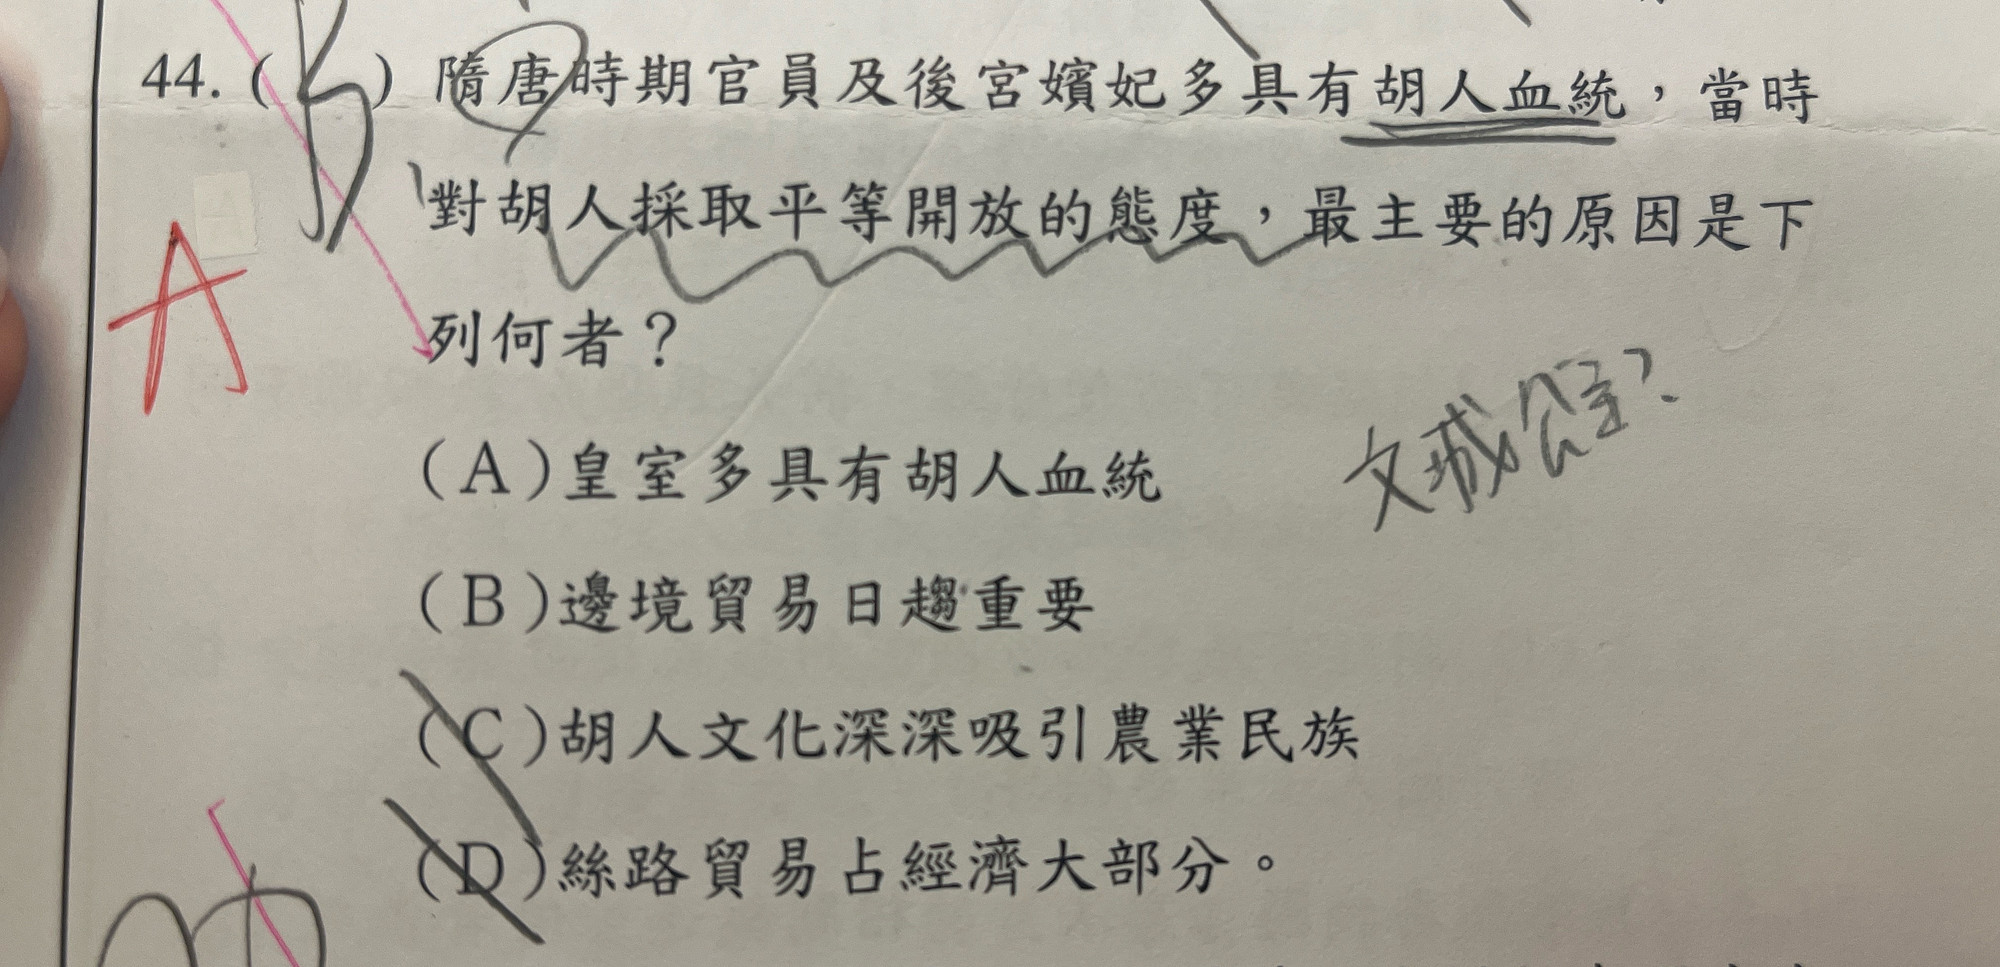 44.( B ) 隋唐時期官員及後宮嬪妃多具有胡人血統，當時
對胡人採取平等開放的態度，最主要的原因是下
A
列何者？
文成公主？
(A)皇室多具有胡人血統
(B)邊境貿易日趨重要
(C)胡人文化深深吸引農業民族
(D)絲路貿易占經濟大部分。